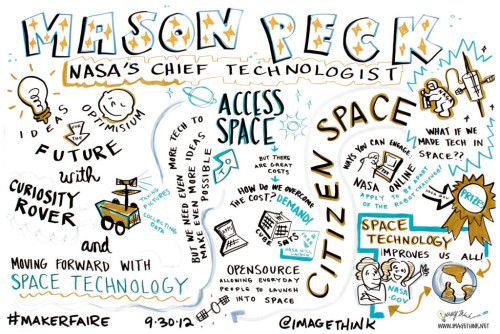 MASON PECK
NASA'S CHIEF TECHNOLOGIST
IDEAS
OPTIMISIUM
The
FUTURE
with
CURIOSITY
ROVER
TAKING
PICTURES
COLLECTING
DATA
and
MOVING FORWARD WITH
SPACE TECHNOLOGY
BUT WE NEED EVEN MORE TECH TO
MAKE EVEN MORE IDEAS
POSSIBLE
ACCESS
SPACE
BUT THERE
ARE GREAT
COSTS
HOW DO WE OVERCOME
THE COST? DEMAND!
CUBE SATS
OPENSOURCE
ALLOWING EVERYDAY
PEOPLE TO LAUNCH
INTO SPACE
CITIZEN SPACE
WAYS YOU CAN ENGAGE:
NASA ONLINE
APPLY TO BE APART
OF THE ROBOT CHALLENGE!
WHAT IF WE
MADE TECH IN
SPACE??
PRIZES
SPACE
TECHNOLOGY
IMPROVES US ALL!
NASA.
GOV
#MAKERFAIRE
9·30·12
@IMAGETHINK
WWW.IMAGETHINK.NET